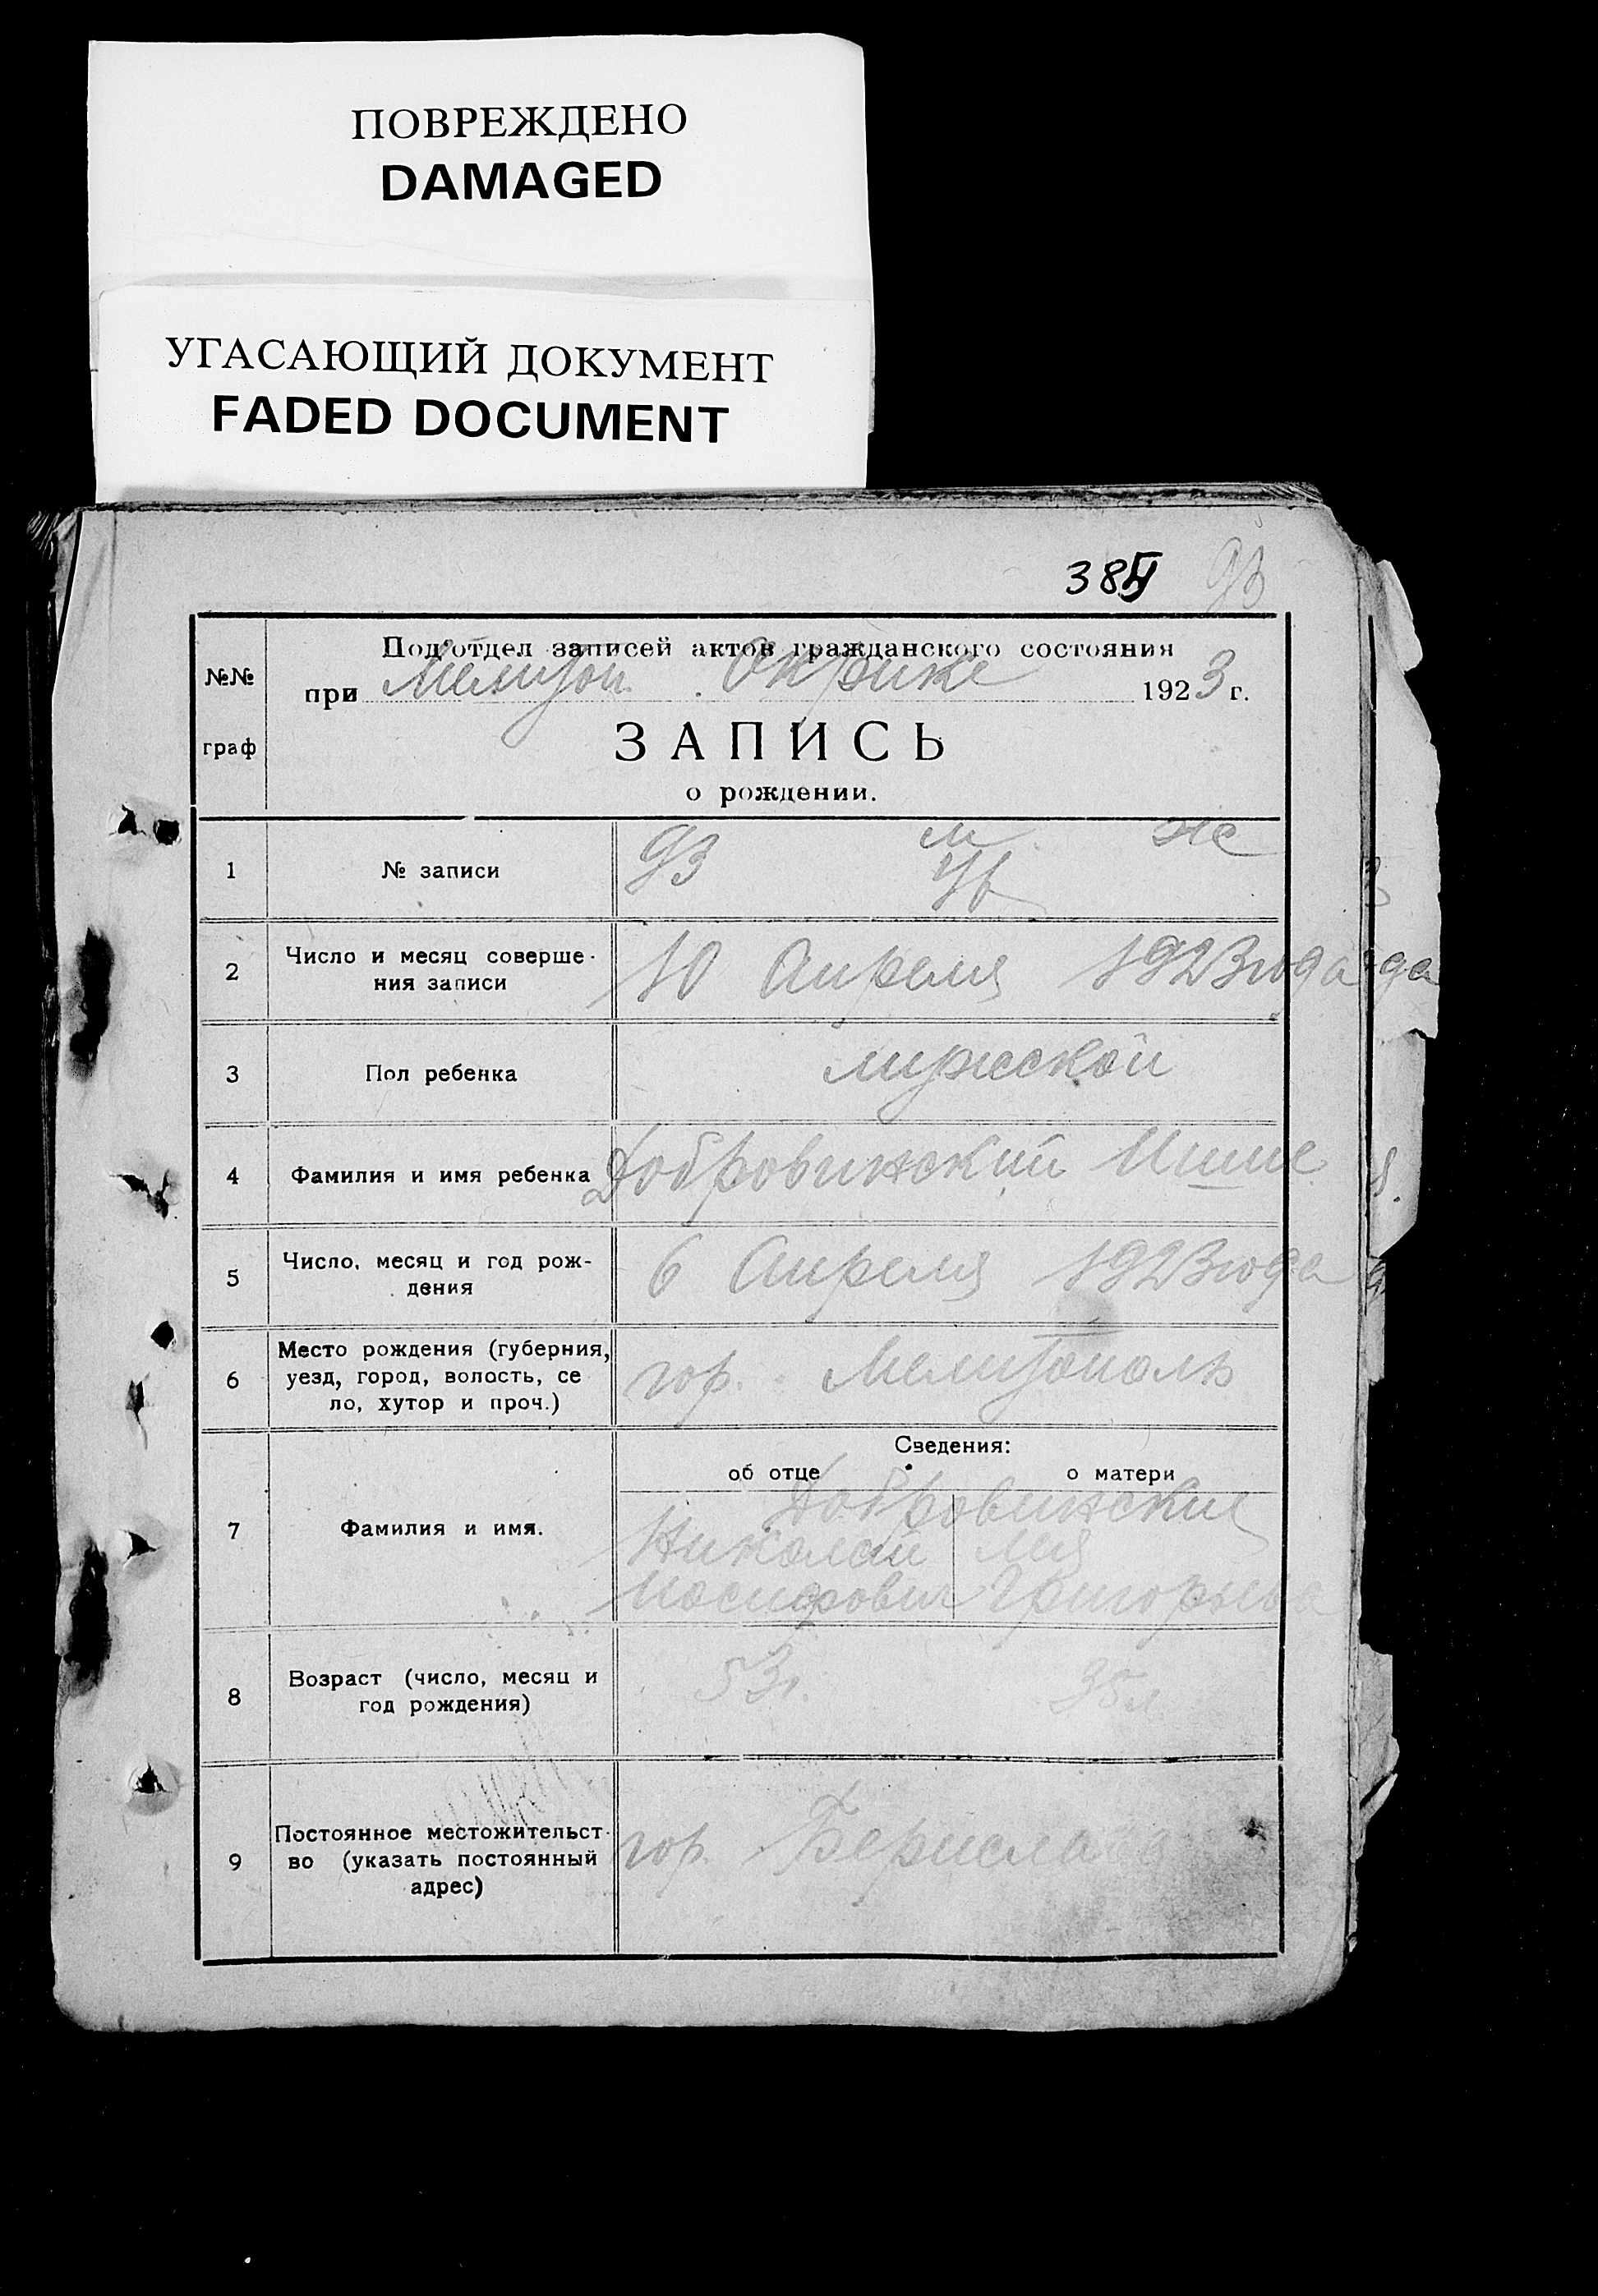 ПОВРЕЖДЕНО
DAMAGED
УГАСАЮЩИЙ ДОКУМЕНТ
FADED DOCUMENT
93
№№
граф
Подотдел записей актов гражданского состояния
при Мелитоп. Окрике 1923 г.
ЗАПИСЬ
о рождении.
м ж
1 № записи 93
2 Число и месяц соверше-
ния записи 10 Апреля 1923 года
3 Пол ребенка мужской
4 Фамилия и имя ребенка Добровинский
5 Число, месяц и год рож-
дения 6 Апреля 1923 года
6 Место рождения (губерния,
уезд, город, волость, се
ло, хутор и проч.) гор. Мелитополь
Сведения:
об отце о матери
Добровинские
7 Фамилия и имя. Николай Лия
Иосифович Григорьева
8 Возраст (число, месяц и
год рождения) 53 г. 35 л
9 Постоянное местожительст-
во (указать постоянный
адрес) гор. Берислав